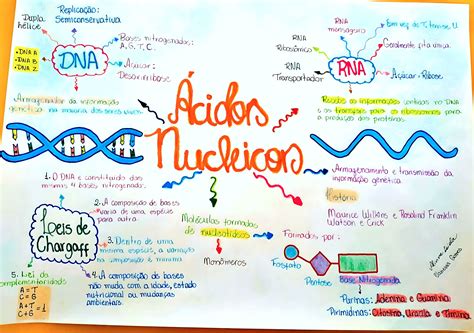 Replicação:
Semiconservativa
Dupla
hélice
• DNA A
• DNA B
• DNA Z
DNA
Bases nitrogenadas:
A, G, T, C.
Açúcar:
Desoxirribose
Armazenador da informação
genética na maioria dos seres vivos.
RNA
mensageiro
RNA
Ribossômico
RNA
Transportador
RNA
Em vez de T, tem-se U.
Geralmente fita única.
Açúcar: Ribose
Ácidos
Nucleicos
Armazenamento e transmissão da
informação genética
História
Maurice Wilkins e Rosalind Franklin
Watson e Crick
1. O DNA é constituído das
mesmas 4 bases nitrogenadas.
Leis de
Chargaff
2. A composição de bases
varia de uma espécie para
outra.
3. Dentro de uma
mesma espécie, a variação
na composição é mínima
4. A composição de bases
não muda com a idade, estado
nutricional ou mudanças
ambientais
5. Lei da
complementaridade
A = T
C = G
A + T = 1
C + G
Moléculas formadas
de nucleotídeos
Monômeros
Formados por:
Fosfato
Pentose
Base Nitrogenada
Purinas: Adenina e Guanina
Pirimidinas: Citosina, Uracila e Timina